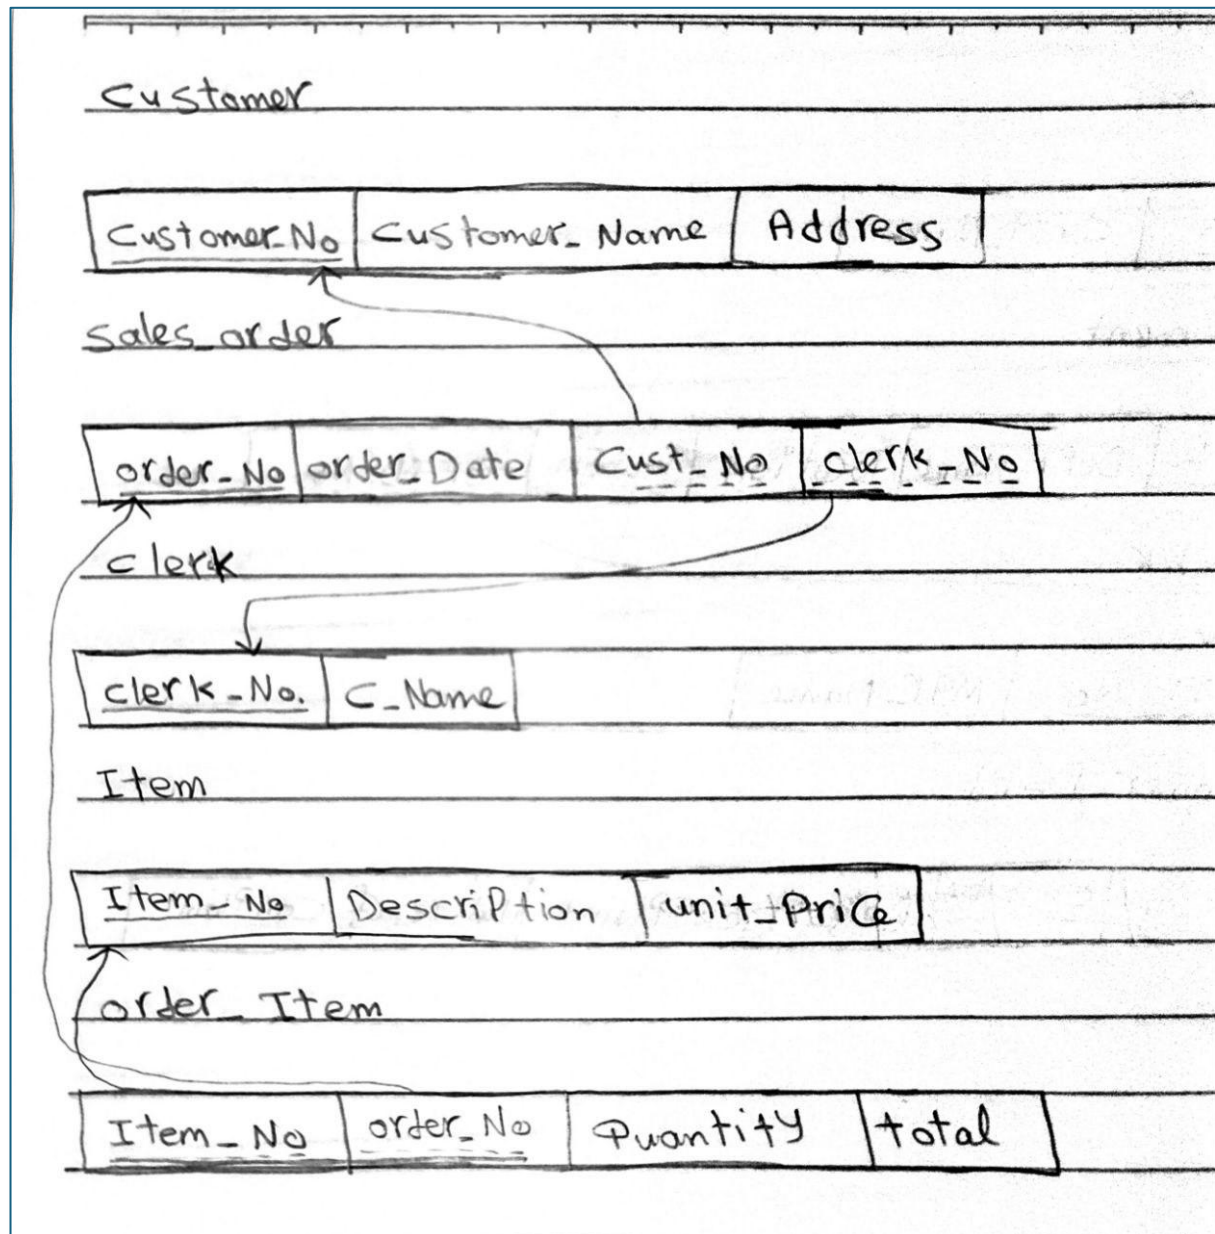 Customer
Customer_No Customer_Name Address
Sales_order
order_No order_Date Cust_No clerk_No
clerk
clerk_No. C_Name
Item
Item_No Description unit_Price
order_Item
Item_No order_No Quantity total